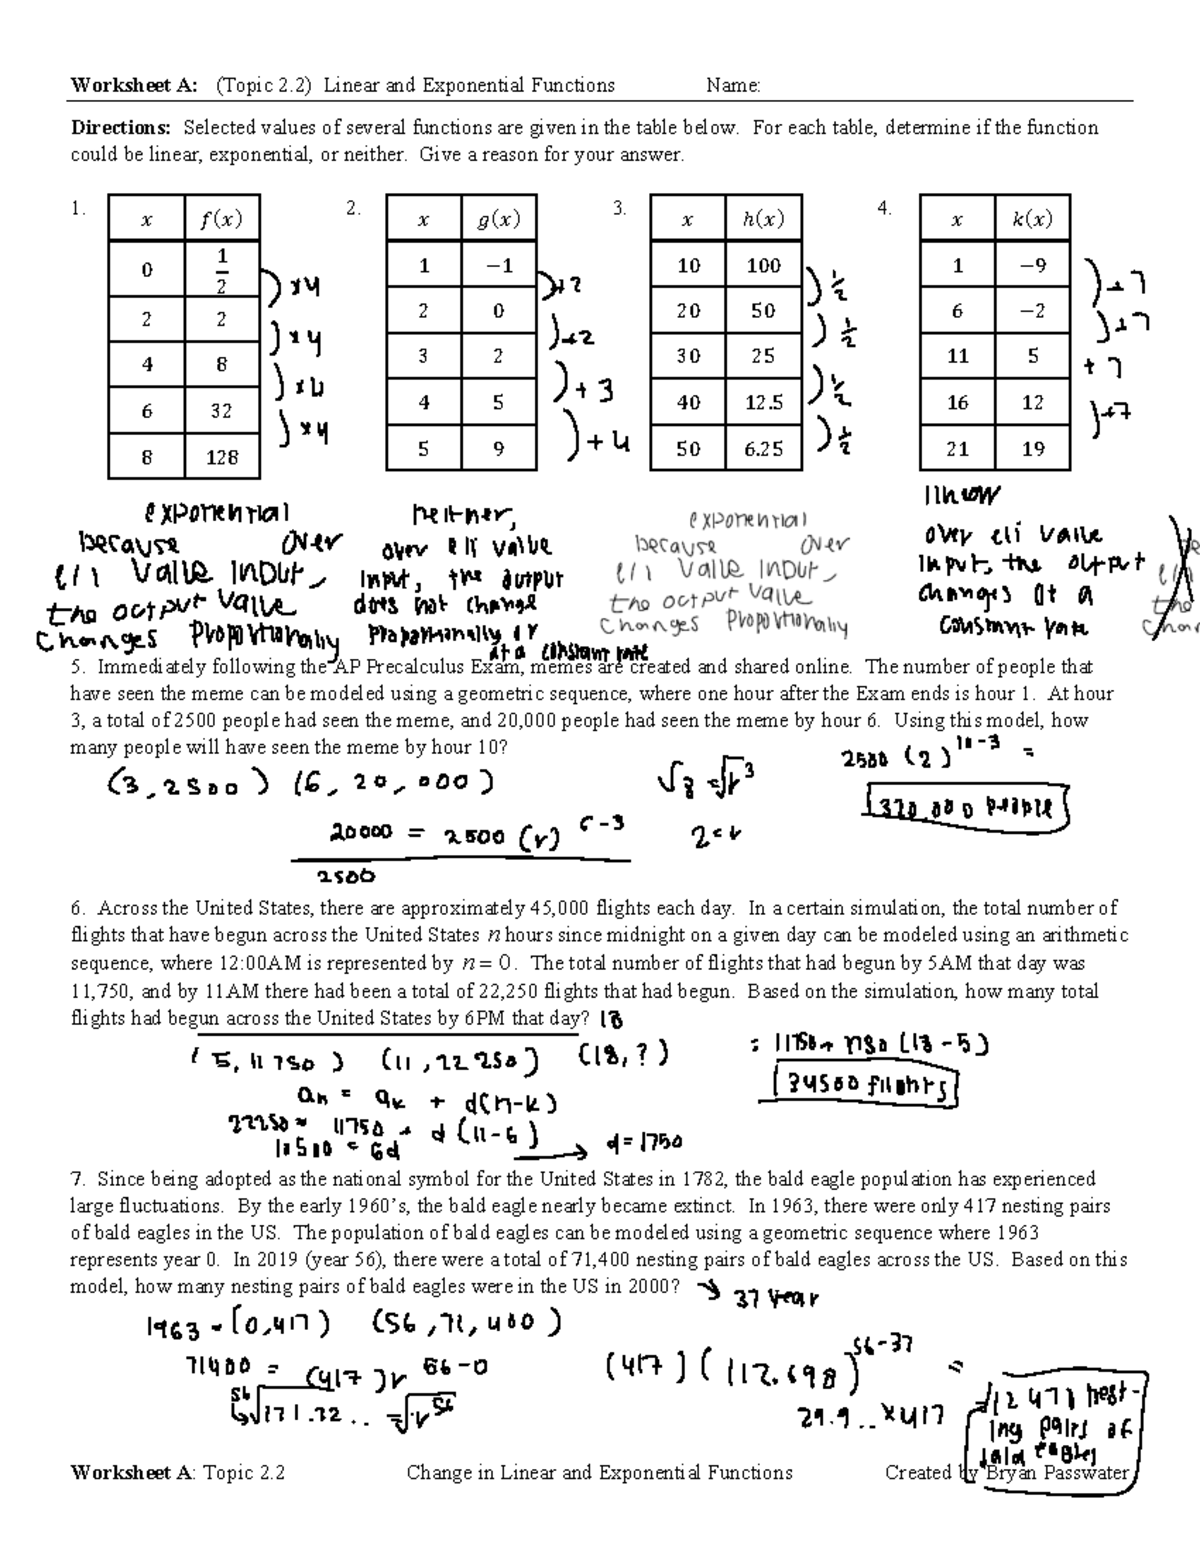 Worksheet A: (Topic 2.2) Linear and Exponential Functions Name:
Directions: Selected values of several functions are given in the table below. For each table, determine if the function
could be linear, exponential, or neither. Give a reason for your answer.
1. 2. 3. 4.
x f(x)
0 1/2
2 2
4 8
6 32
8 128
×4
×4
×4
×4
x g(x)
1 −1
2 0
3 2
4 5
5 9
+2
+3
+4
x h(x)
10 100
20 50
30 25
40 12.5
50 6.25
1/2
1/2
1/2
1/2
x k(x)
1 −9
6 −2
11 5
16 12
21 19
+7
+7
+7
+7
exponential
because over
Value Input,
the output Value
Changes Proportionally
neither,
over value
input, the output
does not change
Proportionally or
at a constant rate
exponential
because over
Value Input,
the output Value
Changes Proportionally
linear
over value
input, the output
changes at a
constant rate
5. Immediately following the AP Precalculus Exam, memes are created and shared online. The number of people that
have seen the meme can be modeled using a geometric sequence, where one hour after the Exam ends is hour 1. At hour
3, a total of 2500 people had seen the meme, and 20,000 people had seen the meme by hour 6. Using this model, how
many people will have seen the meme by hour 10?
2500 (2)^10-3 =
(3, 2500) (6, 20,000)
√8 = √r^3
320,000 people
20000 = 2500 (r)^6-3
2 = r
2500
6. Across the United States, there are approximately 45,000 flights each day. In a certain simulation, the total number of
flights that have begun across the United States n hours since midnight on a given day can be modeled using an arithmetic
sequence, where 12:00AM is represented by n = 0. The total number of flights that had begun by 5AM that day was
11,750, and by 11AM there had been a total of 22,250 flights that had begun. Based on the simulation, how many total
flights had begun across the United States by 6PM that day? 18
(5, 11750) (11, 22250) (18, ?)
= 11750 + 1750 (18-5)
34500 flights
an = ak + d(n-k)
22250 = 11750 + d (11-5)
10500 = 6d
d = 1750
7. Since being adopted as the national symbol for the United States in 1782, the bald eagle population has experienced
large fluctuations. By the early 1960's, the bald eagle nearly became extinct. In 1963, there were only 417 nesting pairs
of bald eagles in the US. The population of bald eagles can be modeled using a geometric sequence where 1963
represents year 0. In 2019 (year 56), there were a total of 71,400 nesting pairs of bald eagles across the US. Based on this
model, how many nesting pairs of bald eagles were in the US in 2000? → 37 year
1963 - (0,417) (56, 71,400)
71400 = (417) r^56-0
(417) (112.698)^56-37 =
56√171.22.. = √r^56
29.9.. ×417
12471 nest-
ing pairs of
bald eagles
Worksheet A: Topic 2.2 Change in Linear and Exponential Functions Created by Bryan Passwater